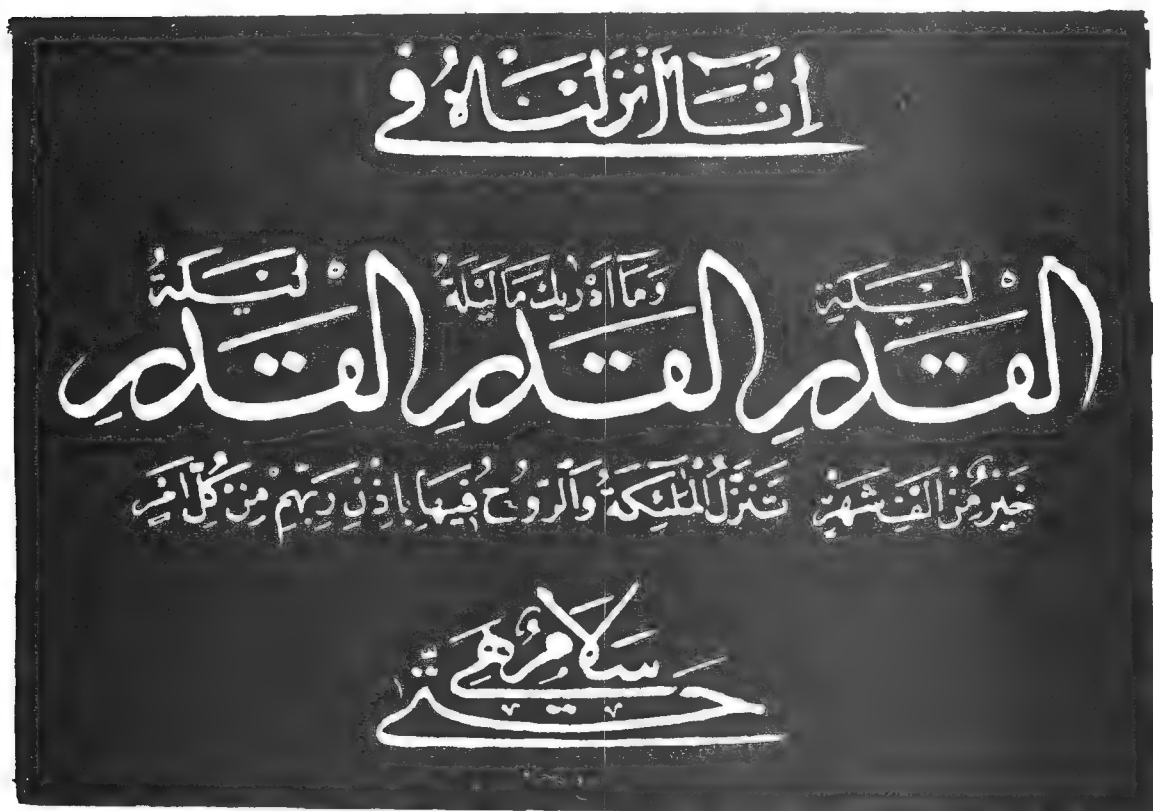 اِنَّا اَنْزَلْنَاهُ فی
لَيْلَةِ الْقَدْرِ وَمَا اَدْرٰيكَ مَا لَيْلَةُ الْقَدْرِ لَيْلَةُ الْقَدْرِ
خَيْرٌ مِنْ اَلْفِ شَهْرٍ تَنَزَّلُ الْمَلٰئِكَةُ وَالرُّوحُ فِيهَا بِاِذْنِ رَبِّهِمْ مِنْ كُلِّ اَمْرٍ
سَلَامٌ هِیَ
حَتّٰی